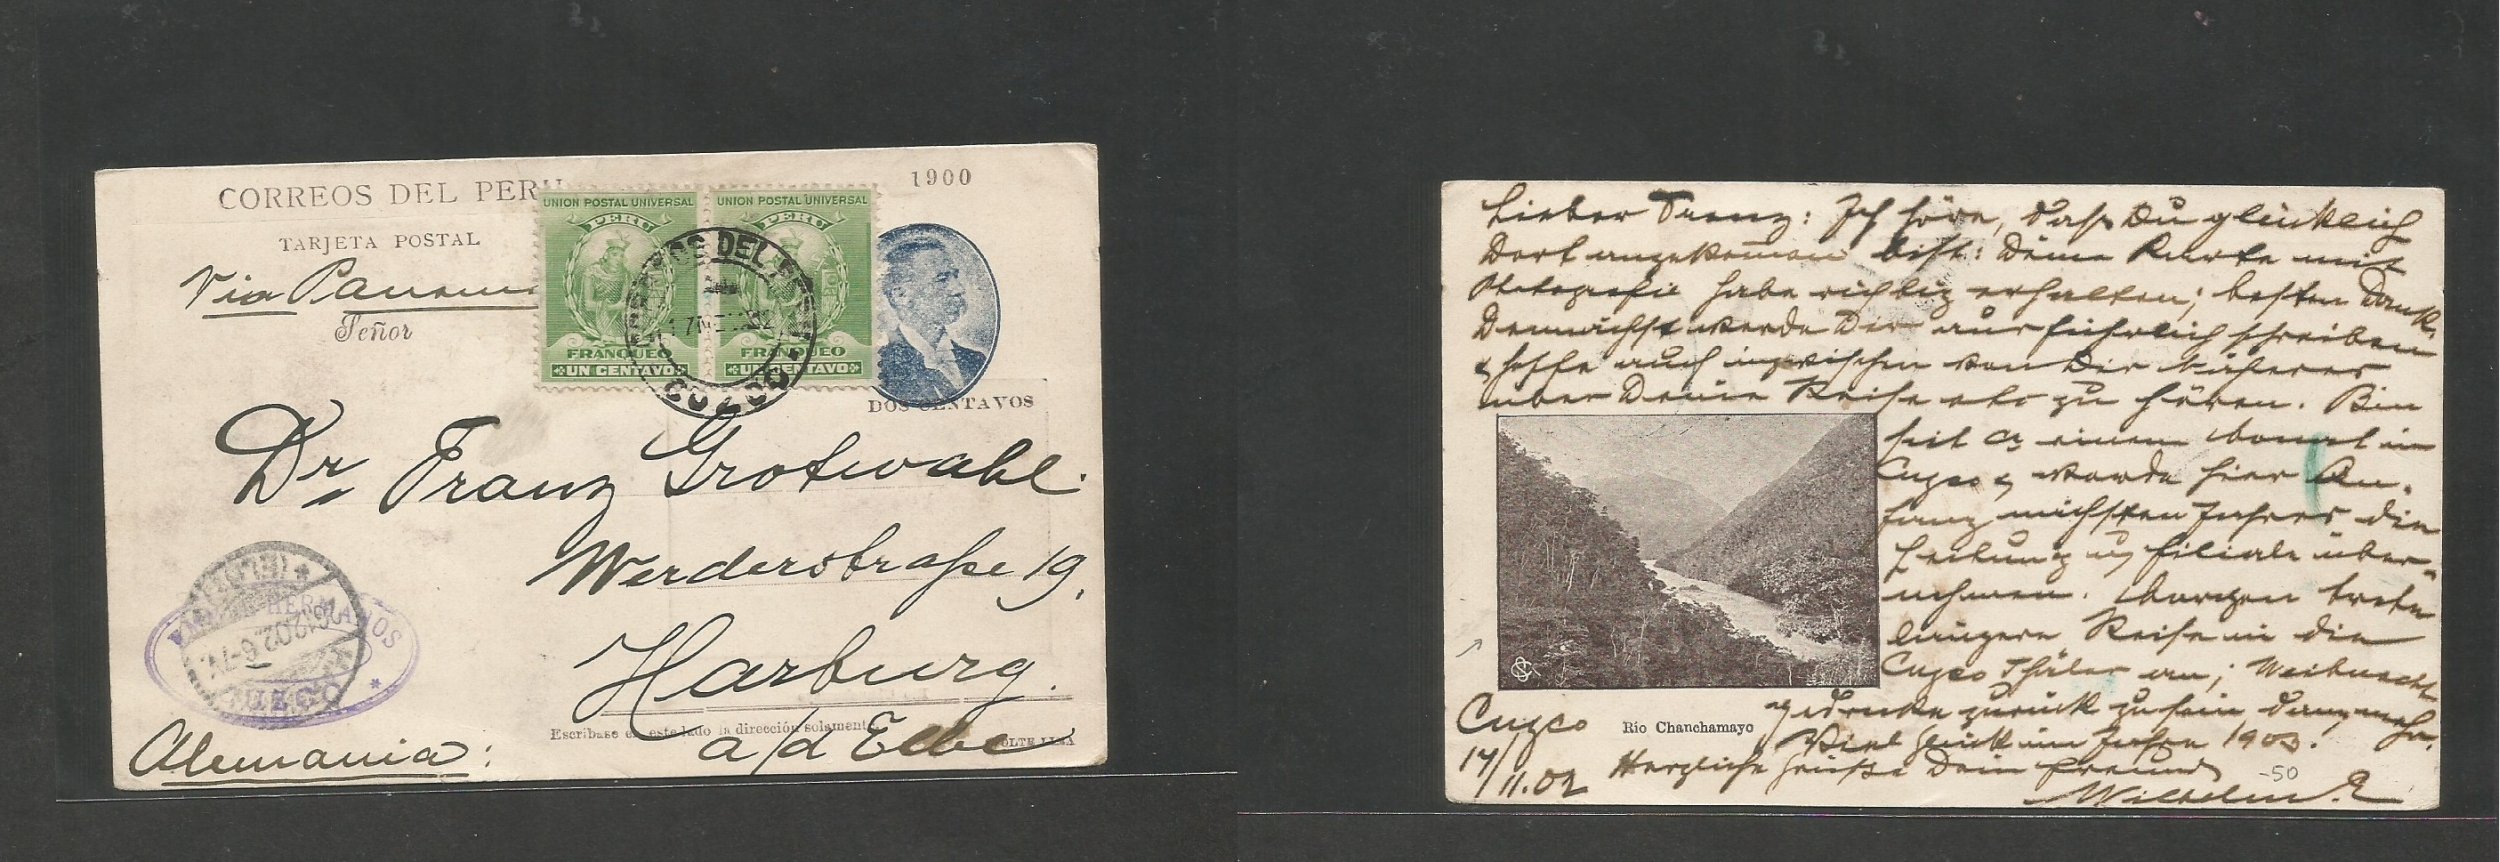 CORREOS DEL PERU
1900
TARJETA POSTAL
Via Panama
Señor
UNION POSTAL UNIVERSAL
PERU
FRANQUEO
UN CENTAVO
UNION POSTAL UNIVERSAL
PERU
FRANQUEO
UN CENTAVO
CORREOS DEL PERU
CUZCO
DOS CENTAVOS
Dr. Franz Grotwahl.
Werderstraße 19.
Harburg.
a/d Elbe
Escríbase en este lado la dirección solamente
HERMANOS
CUZCO
HARBURG (ELBE)
6.12.02. 6-7
Alemania:
Lieber Franz: Ich höre, daß Du glücklich
dort angekommen bist; Deine Karte mit
Photografie habe richtig erhalten; besten Dank.
Demnächst werde Dir ausführlich schreiben
& hoffe auch inzwischen von Dir Näheres
über Deine Reise etc zu hören. Bin
seit ca einem Monat in
Cuzco & werde hier An-
fang nächsten Jahres die
Leitung der Filiale über-
nehmen. Morgen trete
längere Reise in die
Cuzco Thäler an; Weihnacht
gedenke zurück zu sein
Viel Glück im Jahre 1903.
Herzliche Grüße Dein Freund
Wilhelm
Rio Chanchamayo
Cuzco
17/11.02
-50